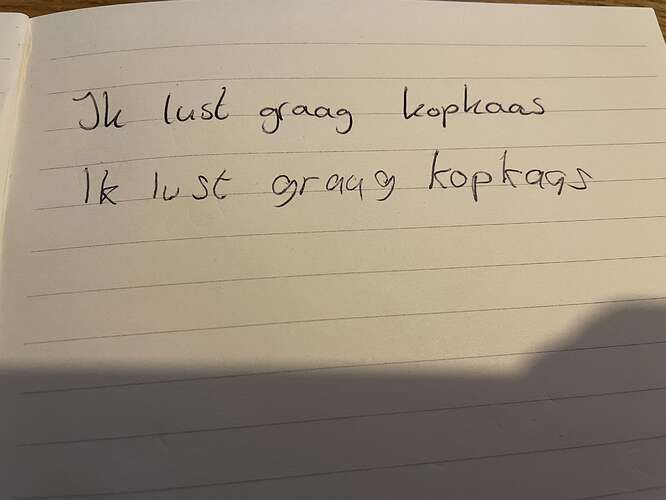 Ik lust graag kopkaas
Ik lust graag kopkaas